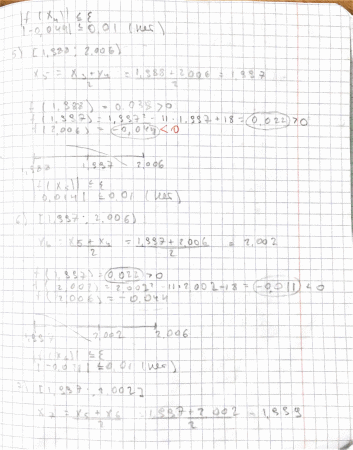 |f(x₄)| ≤ ε
|-0,044| ≤ 0,01 (нет)
5) [1,988; 2,006]
x₅ = x₃+x₄/2 = 1,988+2,006/2 = 1,997
f(1,988) = 0,085 > 0
f(1,997) = 1,997² - 11·1,997 + 18 = 0,022 > 0
f(2,006) = -0,044 < 0
1,997 2,006
|f(x₅)| ≤ ε
≤ 0,01 (нет)
6) [1,997; 2,006]
x₆ = x₅+x₄/2 = 1,997+2,006/2 = 2,002
f(1,997) = 0,022 > 0
f(2,002) = 2,002² - 11·2,002+18 = -0,011 < 0
f(2,006) = -0,044
2,002 2,006
|f(x₆)| ≤ ε
|-0,011| ≤ 0,01 (нет)
7) [1,997; 2,002]
x₇ = x₅+x₆/2 = 1,997+2,002/2 = 1,999